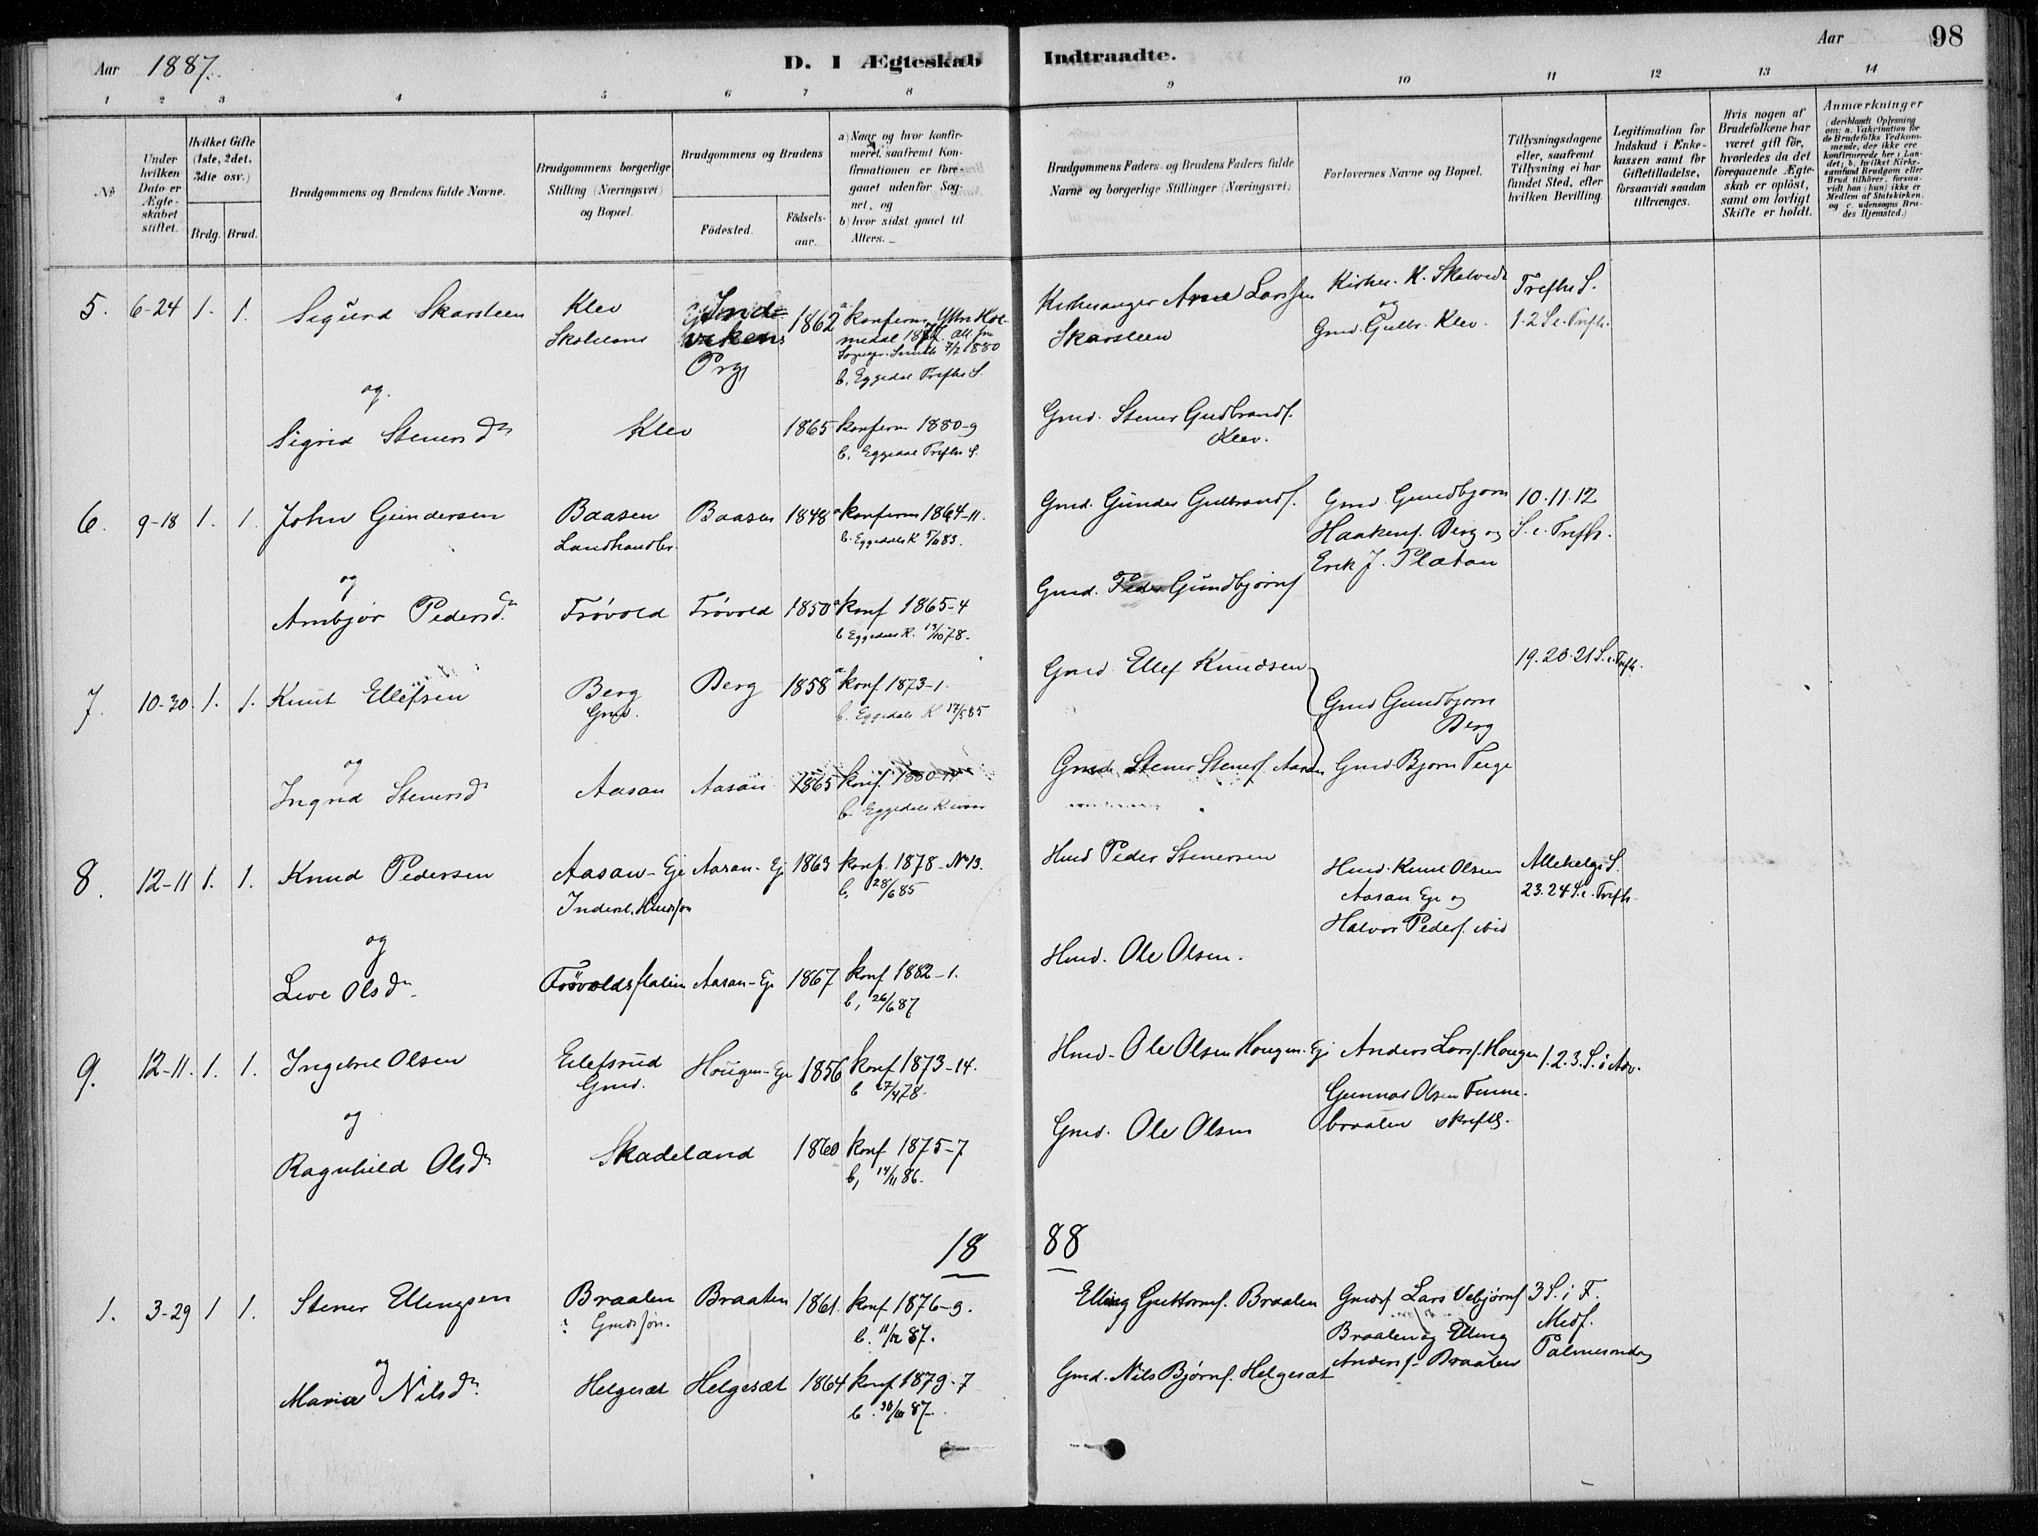 Aar 1887. D. I Ægteskab Indtraadte. Aar 98
1 2 3 4 5 6 7 8 9 10 11 12 13 14
No
Under hvilken Dato er Ægteskabet stiftet.
Hvilket Gifte (1ste, 2det, 3die osv.)
Brdg. Brud.
Brudgommens og Brudens fulde Navne.
Brudgommens borgerlige Stilling (Næringsvei) og Bopæl.
Brudgommens og Brudens
Födested. Födselsaar.
a) Naar og hvor konfirmeret, saafremt Konfirmationen er foregaaet udenfor Sognet, og
b) hvor sidst gaaet til Alters.
Brudgommens Faders og Brudens Faders fulde Navne og borgerlige Stillinger (Næringsvei)
Forlovernes Navne og Bopæl.
Tillysningsdagene eller, saafremt Tillysning ei har fundet Sted, efter hvilken Bevilling.
Legitimation for Indskud i Enkekassen samt for Giftetilladelse, forsaavidt saadan tiltrænges.
Hvis nogen af Brudefolkene har været gift för, hvorledes da det foregaaende Ægteskab er oplöst, samt om lovligt Skifte er holdt.
Anmærkninger (deriblandt Oplysning om: a. Vakcination for de Brudefolks Vedkommende, der ikke ere konfirmerede her i Landet; b. hvilket Kirkesamfund Brudgom eller Brud tilhörer, forsaavidt han (hun) ikke er Medlem af Statskirken, og c. udensogns Brudes Hjemsted.)
5. 6-24 1. 1. Sigurd Skarsteen Klev 1862 a konferm. Kirkesanger Arne Larssen Kirkes. K. Skalved Trefhs S.
Prg. b. Eggedal Trefhs S. Skarsteen og Gmd. Gulbr. Klev. 1.2 S. e. Trefh.
og
Sigrid Stenersdn Klev 1865 konferm 1880-9 Gmd. Stener Gudbrands.
b. Eggedal Trefhs S. Klev.
6. 9-18 1. 1. John Gundersen Baasen Baasen 1848 a konferm 1864-11. Gmd. Gunder Gulbrands. Gmd. Gundbjørn 10.11.12
Landhandler b. Eggedals K Haakens. Berg og S. e. Trefh.
og Erik J. Platou
Ambjør Pedersdn Frøvold Frøvold 1850 a konf 1865-4 Gmd. Peder Gundbjørns
b Eggedals K. 13/10 78.
7. 10-30 1. 1. Knut Ellefsen Berg Berg 1858 a konf 1873-1. Gmd. Ellef Knudsen 19.20.21 S. e. Trefh.
Gmd. b. Eggedals K 17/5 85 Gmd Gundbjørn Berg
og
Ingrid Stenersdn Aasan Aasan 1865 konf. Gmd. Stener Steners. Aasan Gmd. Bjørn Teige
b. Eggedals K.
8. 12-11 1. 1. Knud Pedersen Aasan-Eje Aasan-Eje 1863 konf. 1878-No 13. Hmd Peder Stenersen Hmd. Knut Olsen Allehelgs S.
Inderst, b. 28/6 85 Aasan Eje og 23.24 S. e. Trefh.
Halvor Peders. ibid
og
Live Olsdn Aasan-Eje 1867 konf 1882-1. Hmd. Ole Olsen.
b, 26/6 87
9. 12-11. 1. 1. Ingebret Olsen Eilefsrud Hougen-Eje 1856 konf 1873-14. Hmd. Ole Olsen Hougen-Eje Anders Lars. Hougen 1.2.3. S. i Adv.
Gmd. b 27/4 78. Gunnar Olsen Finne-
og braaten skriftl.
Ragnhild Olsdn Skadeland 1860 konf 1875-7 Gmd. Ole Olsen
b, 14/11 86.
18 88
1. 3-29 1 1. Stener Ellingsen Braaten Braaten 1861. konf 1876-9. Elling Guttorms. Braaten Gmds. Lars Vebjørns 3 S. i F.
Gmdsøn. b. 11/12 87. Braaten og Elling Midf.
og Anders. Braaten Palmesondag
Maria Nilsdn. Helgeset Helgesæt 1864 konf 1879-7 Gmd. Nils Bjørns. Helgesæt
b. 30/10 87.